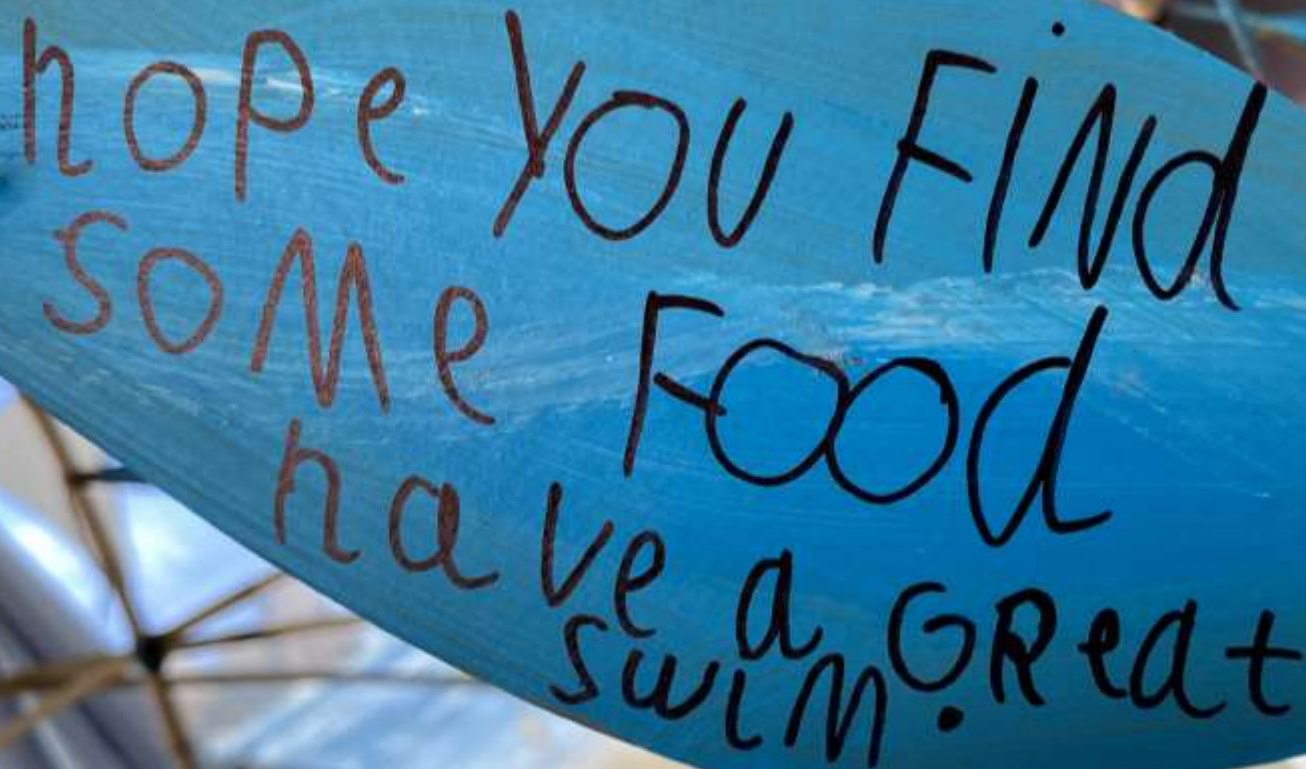 hope You FiNd
soMe Food
have a GReat
swiM.